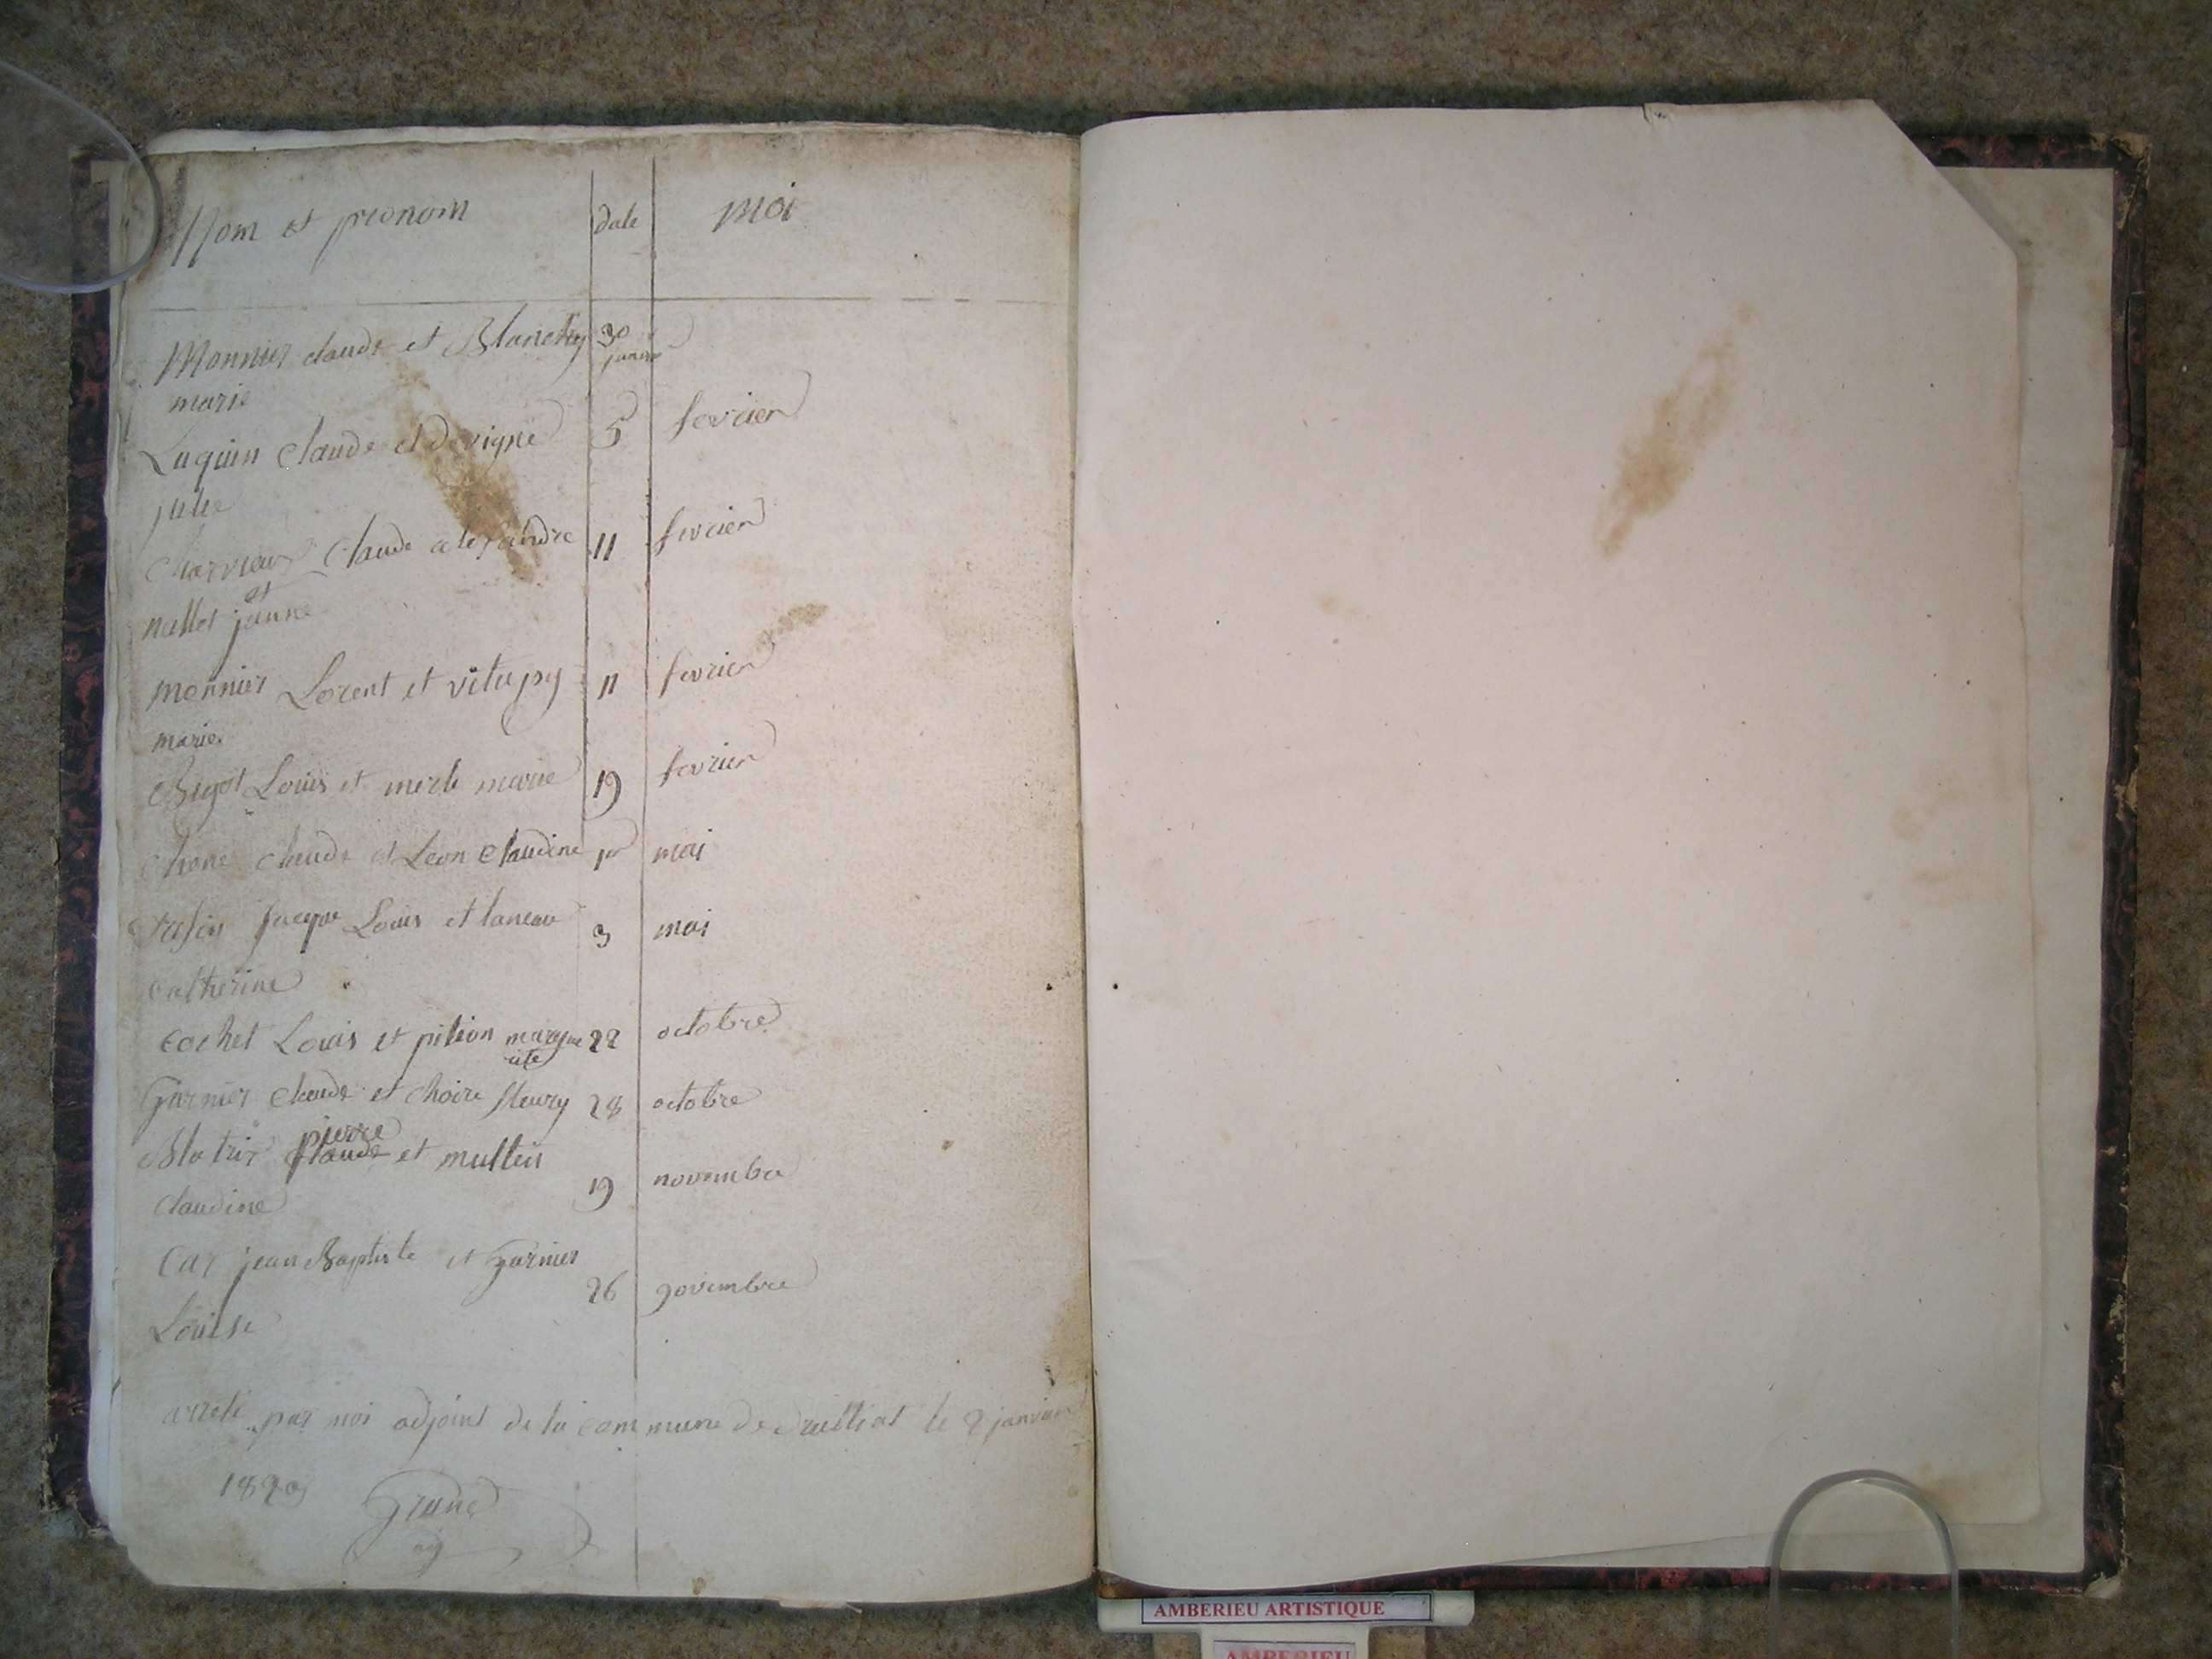 Nom et prenom date moi
Monnier claude et Blanchy 30
janvier
marie
Luquin Claude et devigne 5 fevrier
julie
Charvieux Claude alexandre 11 fevrier
et
nallet janne
monnier Lorent et vitupy 11 fevrier
marie
Bigot Louis et merle marie 19 fevrier
Chone claude et Leon Claudine 1er mai
Jacque Louis et laneau 3 mai
catherine
cochet Louis et pition margue 22 octobre
rite
Garnier Claude et Choire fleury 28 octobre
pierre
Blatrir claude et multein
19 novembre
Claudine
Car jean Baptiste et Garnier
26 novembre
Louise
arreté par moi adjoint de la commune de druilliat le 2 janvier
Grand
adj
AMBERIEU ARTISTIQUE
AMBERIEU